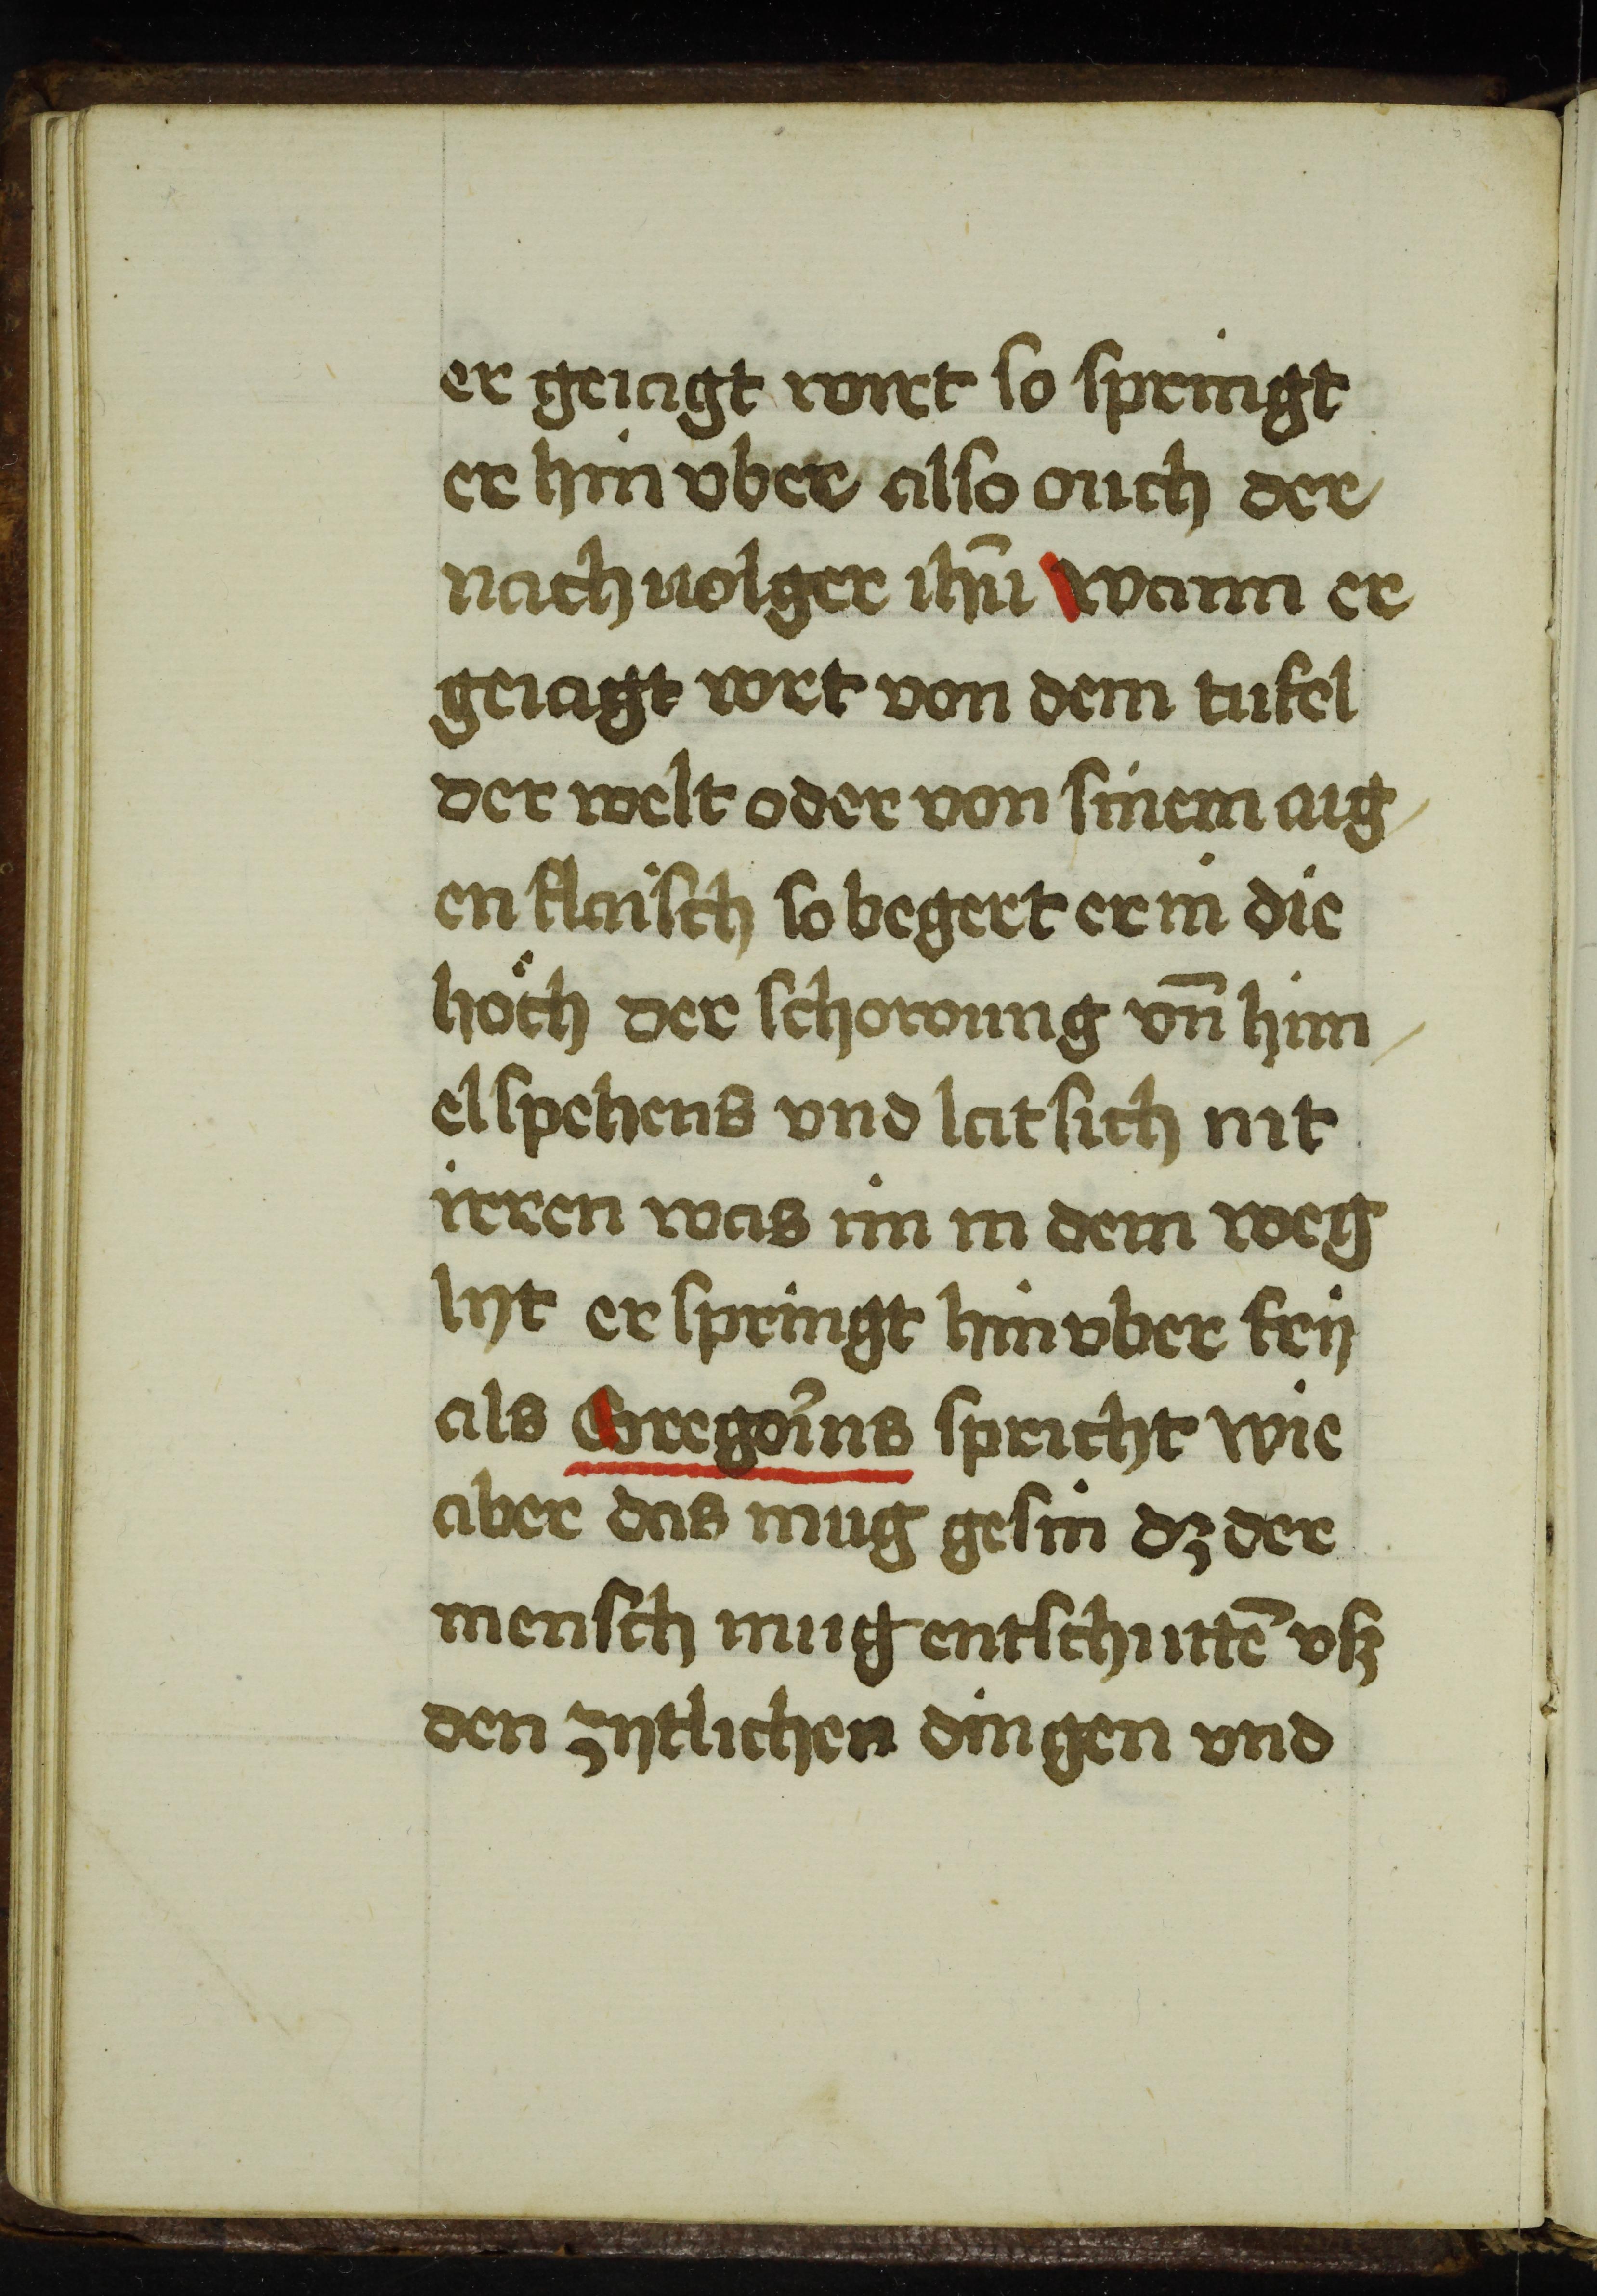 er geiagt wirt so springt
er hin vber also ouch der
nachuolger ihū wann er
geiagt wrt von dem tufel
der welt oder von sinem aig
en flaisch so begert er in die
höch der schowung vn̄ him
elspehens vnd lat sich nit
irren was im in dem weg
lyt er springt hin vber frÿ
als Gregoꝰius spricht wie
aber das mug gesin dz der
mensch mug entschuttē vsz
den zytlichen dingen vnd